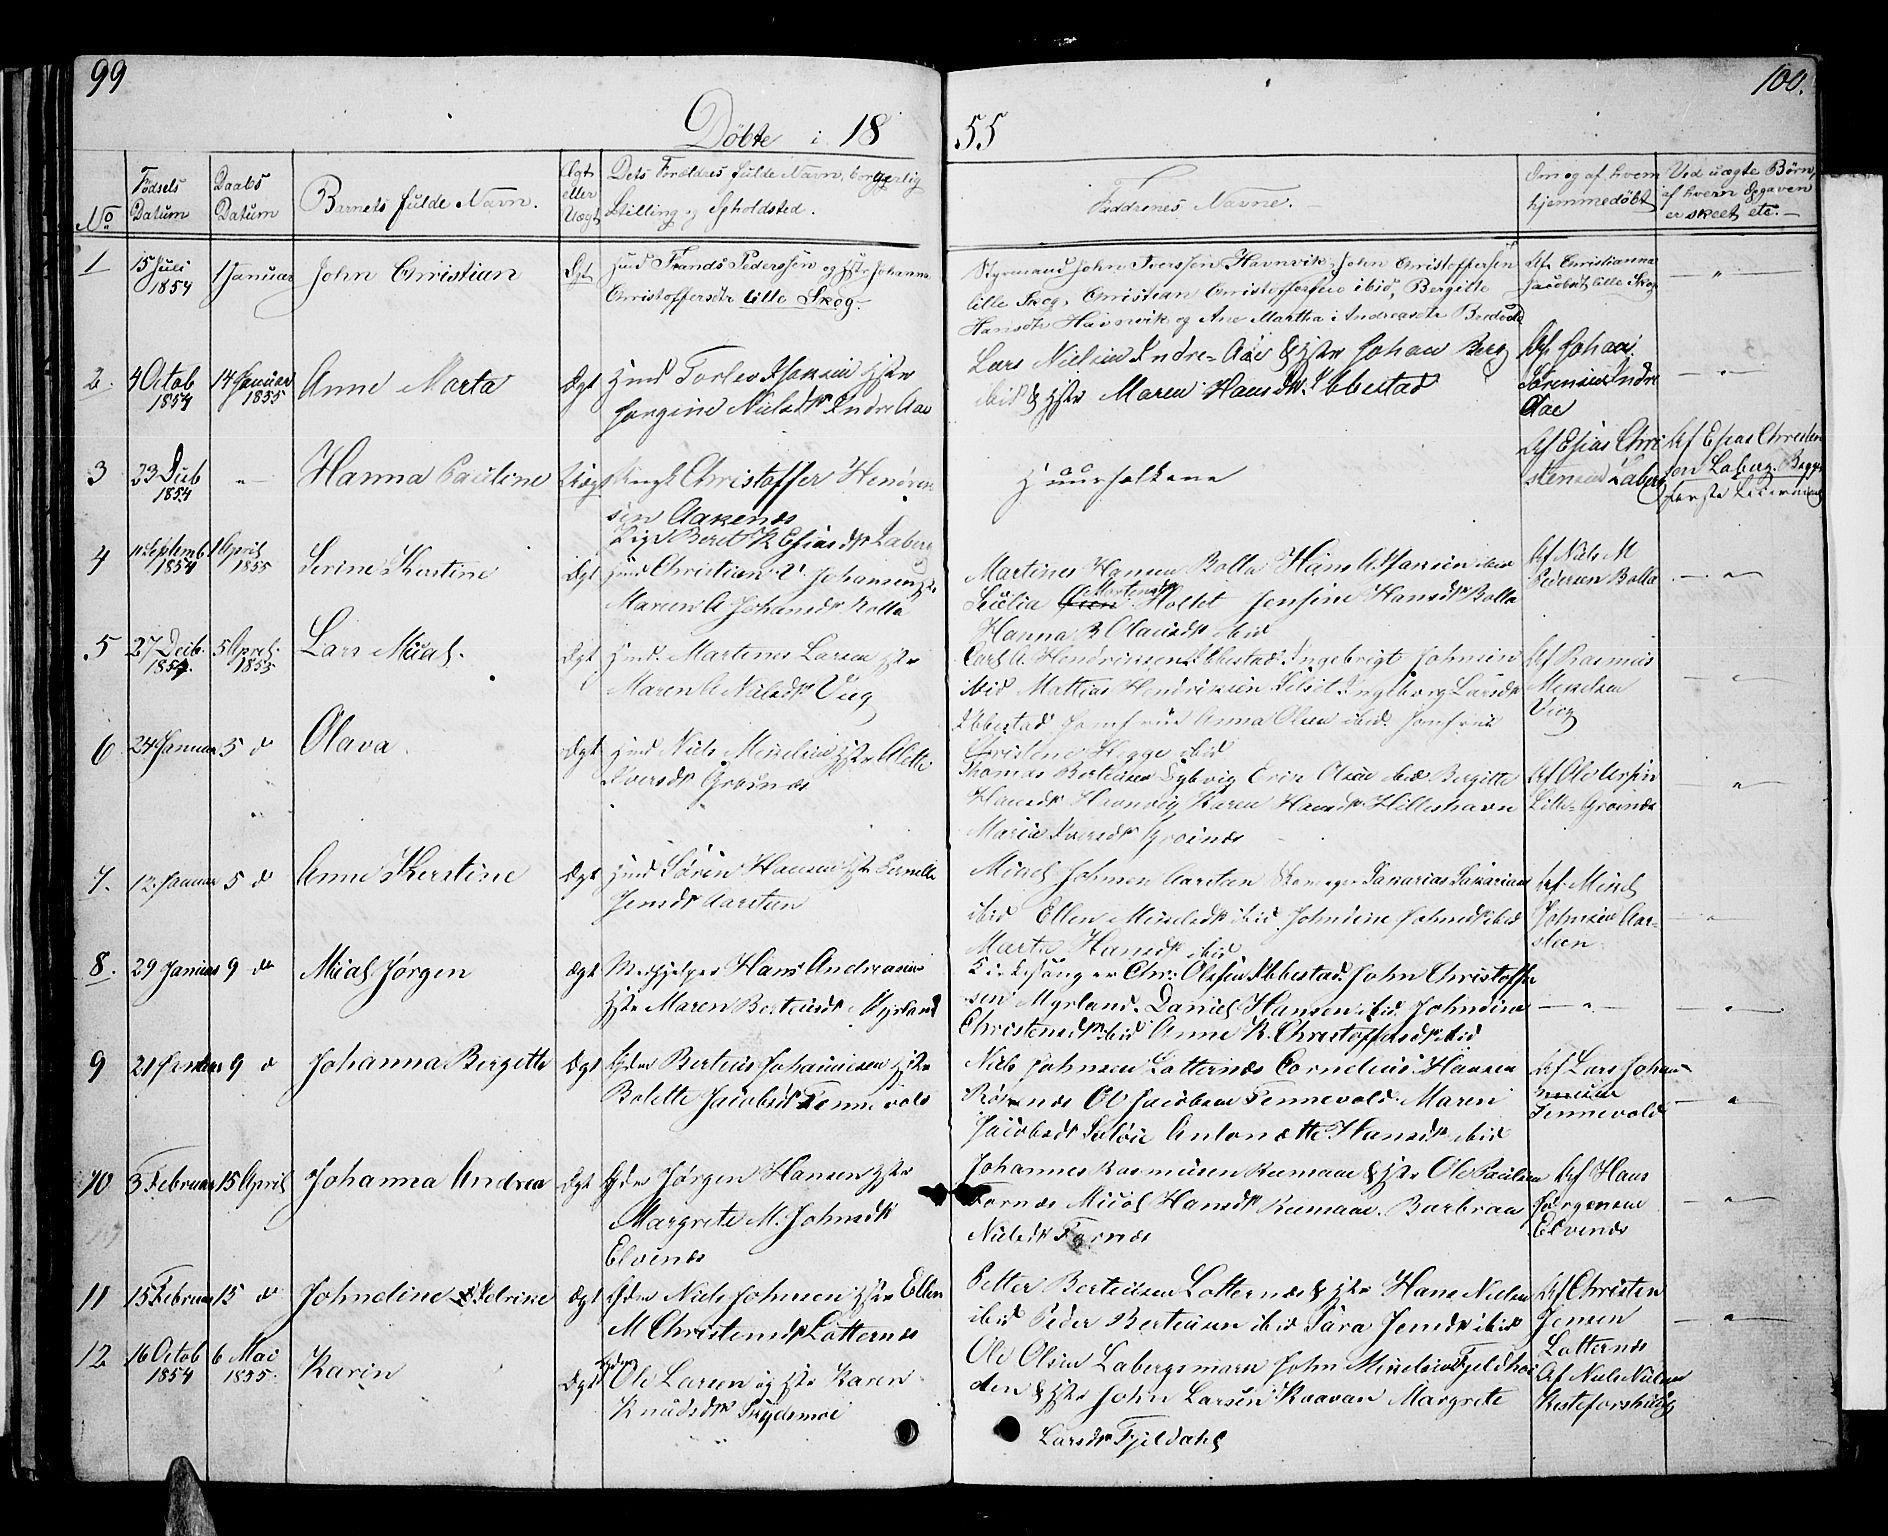 99
100.
Døbte i 1855
No
Fødsels Datum
Daabs Datum
Barnets fulde Navn.
Ægt eller Uægt
Dets Forældres fulde Navn, borgerlig Stilling og Opholdsted.
Faddrenes Navne.
Om og af hvem hjemmedøbt
Ved uægte Børn, af hvem Opgaven er skeet etc.
1
15 Juli 1854
1 Januar
John Christian
Ægt
Hmd Frands Pederssen og Hstr Johanna
Christoffersdtr lille Skog
Styrmand John Iverssen Havnvik, John Christoffersen
lille Skog, Christian Christoffersen ibid, Bergitte
Hansdtr Havnvik og Ane Martha Andreasdtr
Af Christianna
Jacobsdt lille Skog
2.
4 Octob 1854
14 Januar 1855
Anne Marta
Ægt
Hmd Hstr
Nielsdtr Indre Aae
Lars Nielsen Indre Aae & Hstr Johan Berg
ibid & Hstr Maren Hansdtr. Ibbestad
Af Johan
Sørensen Indre
Aae
3
23 1854
Hanna Pauline
Christoffer Hendrik
sen Aakenæs
Pige Beret K Esiasdtr Laberg
Huusfolkene
Af Esias Chri
stensen Laberg
Af Esias Christen
sen Laberg. Begges
første Leiermaal
4
11 Septemb 1854
1 April 1855
Serine Kirstine
Ægt
Hmd Christian Johansen Hstr
Maren A Johansdtr Rolla
Martines Hansen Rolla Hans
Holtet Jensine Hansdtr Rolla
Hanna B Olausdtr ibid
Af Niels M
Pedersen Rolla
5
27 Decb. 1854.
5 April 1855
Lars Mical.
Ægt
Hmd. Martines Larsen Hstr
Maren A Nielsdtr Vig
Carl A. Hendriksen Ibbestad Ingebrigt Johnsen
ibid Mattias Hendriksen Ingeborg Larsdtr
Ibbestad Jomfrue Anna Olsen ibid. Jomfrue
Christene Hegge ibid
Af Rasmus
Mikelsen
Vig
6
24 Januar
5 do
Olava.
Ægt
Hmd Niels Mikelsen Hstr Alette
Iversdtr Grøinæs
Thomas Berteusen Erik Olsen ibid Bergitte
Hansdtr Havnvig Karen Hansdtr Hilleshavn
Maria Iversdtr Grøinæs
Af Ole
Lille Grøinæs
7.
12 Januar
5 do
Anne Kirstine
Ægt
Hmd Søren Hansen Hstr Pernille
Jensdtr Aarsteen
Micel Johnsen Aarsteen
ibid Ellen Mikelsdtr ibid Johnsine Johnsdtr ibid
Marta Hansdtr ibid
Af Micel
Johnsen Aar-
steen
8.
29 Januar
9 do
Micael Jørgen
Ægt
Medhjelper Hans Andreasen
Hstr Maren Berteusdtr Myrland
Kirkesanger Chr. Olsen Ibbestad. John Christoffer
sen Myrland. Daniel Hansen ibid Johnsine
Christensdtr ibid Anne K. Christoffersdtr ibid
9
21 Januar
9 do
Johanna Bergette
Ægt
Gdm Berteus Johannesen Hstr
Bolette Jacobsdtr Tennevold
Niels Johnsen Lotternæs Cornelius Hansen
Ol Jacobsen Tennevold. Maren
Jacobsdtr Antonette Hansdtr ibid
Af Lars Johan-
nesen
Tennevold
10
3 Februar
15 April
Johanna Andrea
Ægt
Gdm Jørgen Hansen Hstr
Margrete M. Johnsdtr
Elvenæs
Johannes Rasmusen & Hstr Ole Paulsen
Fornæs Micol Hansdtr Barbraa
Nielsdtr Fornæs
Af Hans
Jørgensen
Elvenæs
11
15 Februar
15 do
Johneline Petrine
Ægt
Gdm Niels Johnsen Hstr Ellen
M Christensdtr Lotternæs
Petter Berteusen Lotternæs & Hstr Hans Nielsen
ibid Peder Berteusen ibid Sara Jensdtr ibid
Af Christen
Jensen
Lotternæs
12
16 Octob 1854
6 Mai 1855.
Karin
Ægt
Ole Larsen og Hstr Karen
Knudsdtr Snydemoe
Ole Olsen Labergsmoen John Mikelsen Fjeldhei
den & Hstr John Larsen Kraavan Margrete
Larsdtr Fjeldahl
Af Niels Nielsen
Kisteforshaug